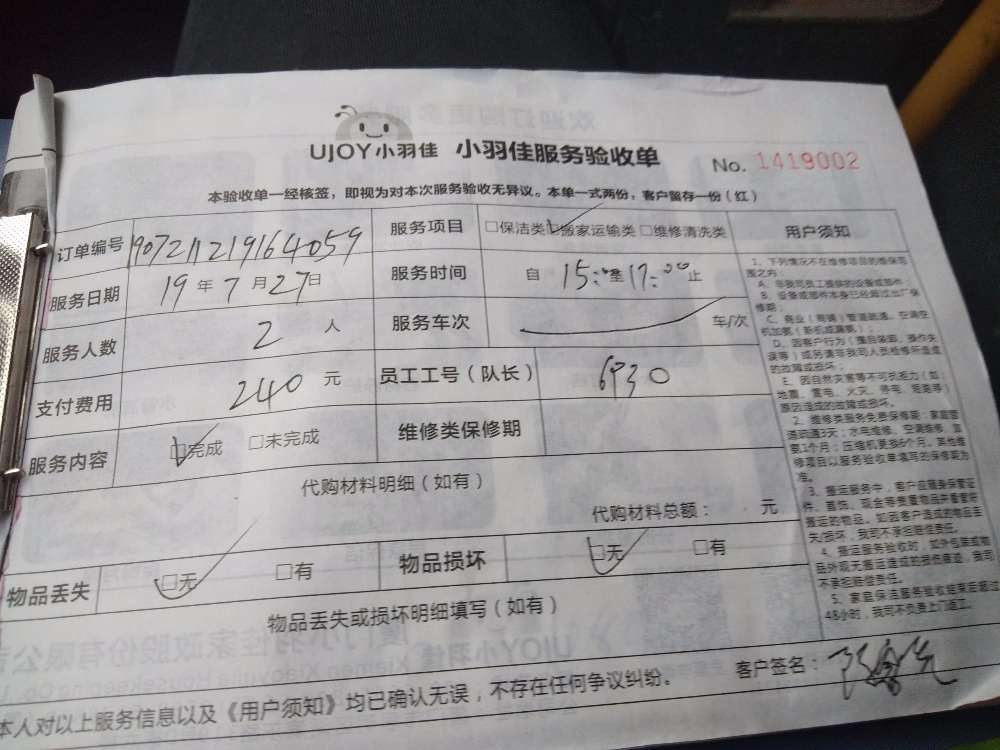 UJOY小羽佳 小羽佳服务验收单 No. 1419002
本验收单一经核签，即视为对本次服务验收无异议。本单一式两份，客户留存一份（红）
订单编号 1907211219164059 服务项目 □保洁类 ☑搬家运输类 □维修清洗类 用户须知
服务日期 19年7月27日 服务时间 自15:00至17:00止
服务人数 2人 服务车次 车/次
支付费用 240元 员工工号（队长） 6930
服务内容 ☑完成 □未完成 维修类保修期
代购材料明细（如有）
代购材料总额： 元
物品丢失 ☑无 □有 物品损坏 ☑无 □有
物品丢失或损坏明细填写（如有）
1、下列情况不在维修项目的维保范围之内：
A、非我司员工提供的设备或部件；
B、设备或部件本身已经超过出厂保修期；
C、商业（商铺）管道疏通，空调空机加氨（新机或漏氨）；
D、因客户行为（擅自装卸、操作失误等）或另请非我司人员检修所造成的故障或损坏；
E、因自然灾害等不可抗拒力（如：地震、雷电、火灾、停电、短路等）原因造成的故障或损坏。
2、维修类服务免费保修期：家庭管道疏通3天；水电维修、空调维修、加氨1个月；压缩机更换6个月。其他维修项目以服务验收单填写的保修期为准。
3、搬运服务中，客户应随身保管证件、首饰、现金等贵重物品并看管好搬运的物品。如因客户造成的物品丢失/损坏，我司不承担赔偿责任。
4、搬运服务验收时，如外包装或物品外观无搬运造成的损伤痕迹，我司不承担赔偿责任。
5、家庭保洁服务验收结束后超过48小时，我司不负责上门返工。
本人对以上服务信息以及《用户须知》均已确认无误，不存在任何争议纠纷。 客户签名：